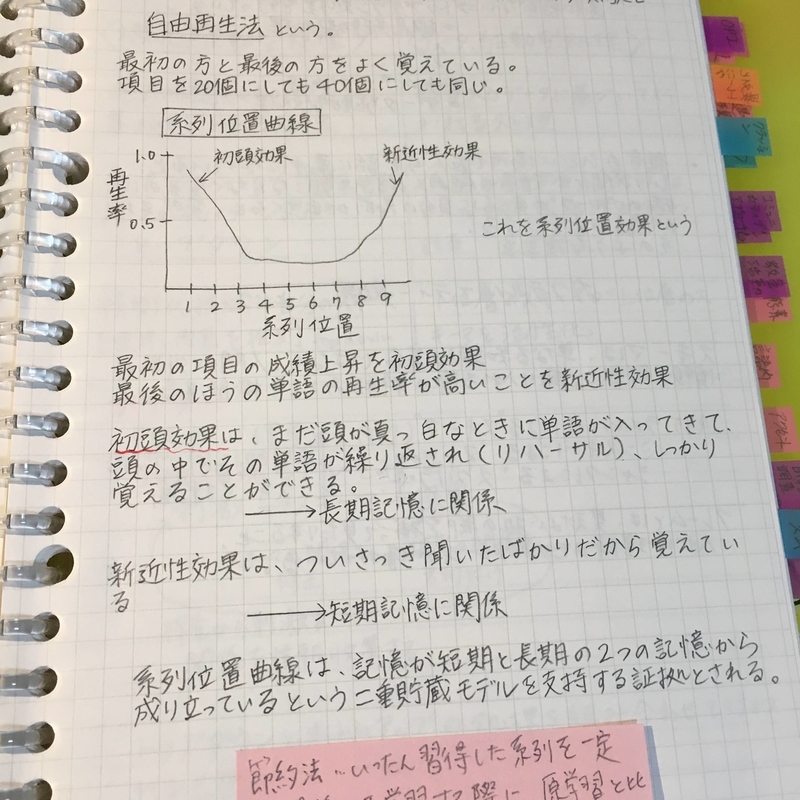 自由再生法 という。
最初の方と最後の方をよく覚えている。
項目を20個にしても40個にしても同じ。
系列位置曲線
1.0
初頭効果
新近性効果
再生率
0.5
これを系列位置効果という
1 2 3 4 5 6 7 8 9
系列位置
最初の項目の成績上昇を初頭効果
最後のほうの単語の再生率が高いことを新近性効果
初頭効果は、まだ頭が真っ白なときに単語が入ってきて、
頭の中でその単語が繰り返され(リハーサル)、しっかり
覚えることができる。
→長期記憶に関係
新近性効果は、ついさっき聞いたばかりだから覚えてい
る
→短期記憶に関係
系列位置曲線は、記憶が短期と長期の2つの記憶から
成り立っているという二重貯蔵モデルを支持する証拠とされる。
節約法…いったん習得した系列を一定
学習する際に、原学習と比